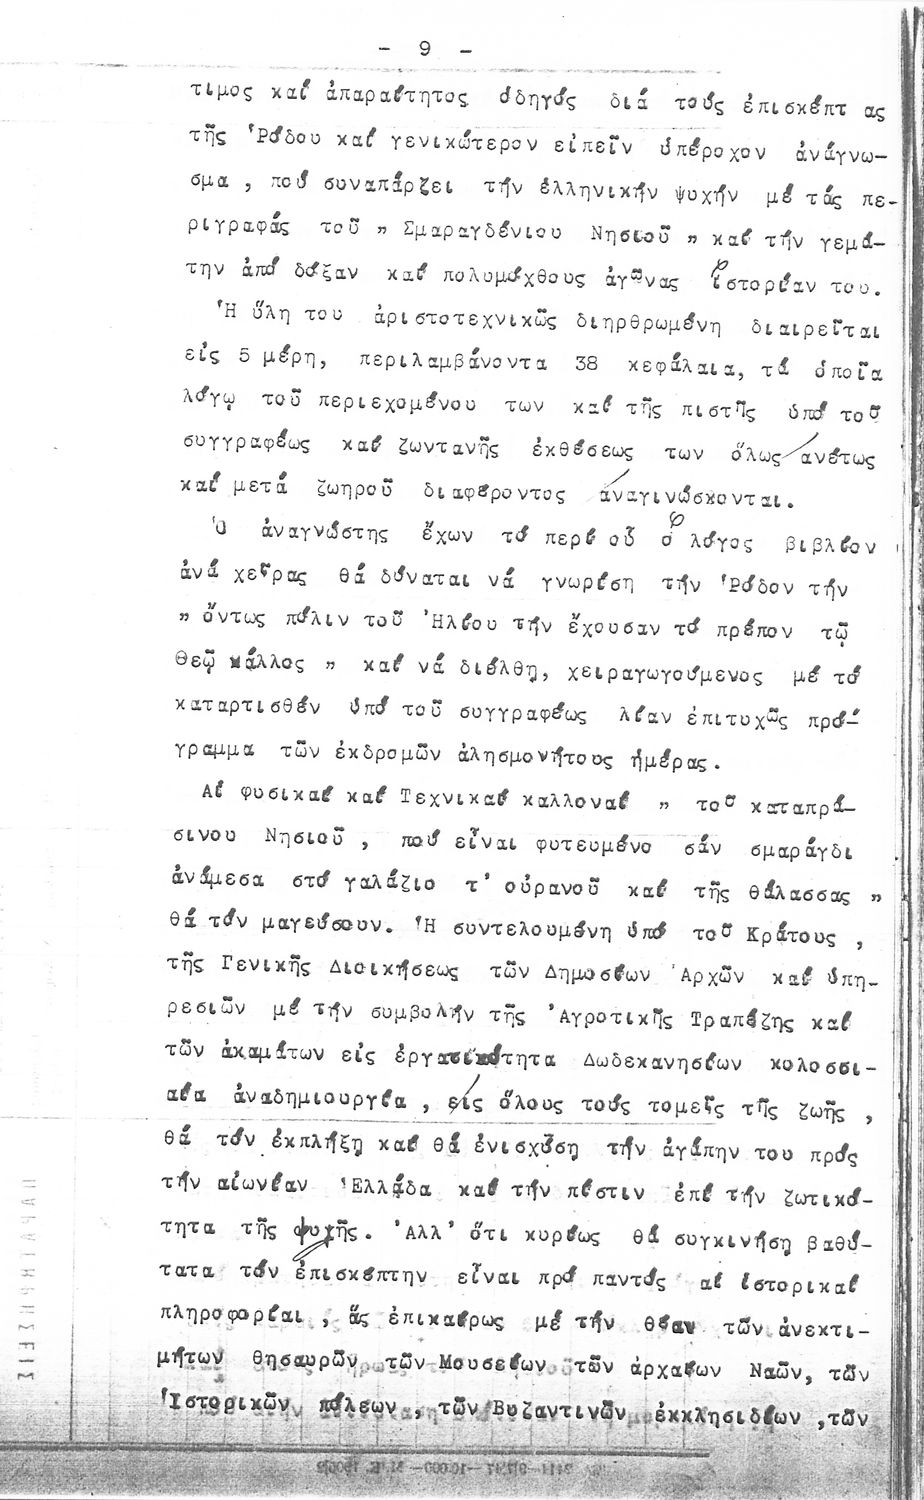 - 9 -
τιμος καί ἀπαραίτητος ὁδηγός διά τούς ἐπισκέπτ ας
τῆς Ῥόδου καί γενικώτερον εἰπεῖν ὑπέροχον ἀνάγνω-
σμα , πού συναπάρζει τήν ἑλληνικήν ψυχήν μέ τάς πε-
ριγραφάς τοῦ " Σμαραγδένιου Νησιοῦ " καί τήν γεμά-
την ἀπό δόξαν καί πολυμόχθους ἀγῶνας ἱστορίαν του.
Ἡ ὕλη του ἀριστοτεχνικῶς διηρθρωμένη διαιρεῖται
εἰς 5 μέρη, περιλαμβάνοντα 38 κεφάλαια, τά ὁποῖα
λόγῳ τοῦ περιεχομένου των καί τῆς πιστῆς ὑπό τοῦ
συγγραφέως καί ζωντανῆς ἐκθέσεως των ὅλως ἀνέτως
καί μετά ζωηροῦ διαφέροντος ἀναγινώσκονται.
Ὁ ἀναγνώστης ἔχων τό περί οὗ ὁ λόγος βιβλίον
ἀνά χεῖρας θά δύναται νά γνωρίση τήν Ῥόδον τήν
" ὄντως πόλιν τοῦ Ἡλίου τήν ἔχουσαν τό πρέπον τῷ
Θεῷ κάλλος " καί νά διέλθη, χειραγωγούμενος μέ τό
καταρτισθέν ὑπό τοῦ συγγραφέως λίαν ἐπιτυχῶς πρό-
γραμμα τῶν ἐκδρομῶν ἀλησμονήτους ἡμέρας.
Αἱ φυσικαί καί Τεχνικαί καλλοναί " τοῦ καταπρά-
σινου Νησιοῦ , πού εἶναι φυτευμένο σάν σμαράγδι
ἀνάμεσα στό γαλάζιο τ' οὐρανοῦ καί τῆς θάλασσας "
θά τόν μαγεύσουν. Ἡ συντελουμένη ὑπό τοῦ Κράτους ,
τῆς Γενικῆς Διοικήσεως τῶν Δημοσίων Ἀρχῶν καί ὑπη-
ρεσιῶν μέ τήν συμβολήν τῆς Ἀγροτικῆς Τραπέζης καί
τῶν ἀκαμάτων εἰς ἐργατικότητα Δωδεκανησίων κολοσσι-
αία ἀναδημιουργία , εἰς ὅλους τούς τομεῖς τῆς ζωῆς ,
θά τόν ἐκπλήξη καί θά ἐνισχύση τήν ἀγάπην του πρός
τήν αἰωνίαν Ἑλλάδα καί τήν πίστιν ἐπί τήν ζωτικό-
τητα τῆς ψυχῆς. Ἀλλ' ὅτι κυρίως θά συγκινήση βαθύ-
τατα τόν ἐπισκέπτην εἶναι πρό παντός αἱ ἱστορικαί
πληροφορίαι , ἅς ἐπικαίρως μέ τήν θέαν τῶν ἀνεκτι-
μήτων θησαυρῶν τῶν Μουσείων τῶν ἀρχαίων Ναῶν, τῶν
Ἱστορικῶν πόλεων , τῶν Βυζαντινῶν ἐκκλησιδίων ,τῶν